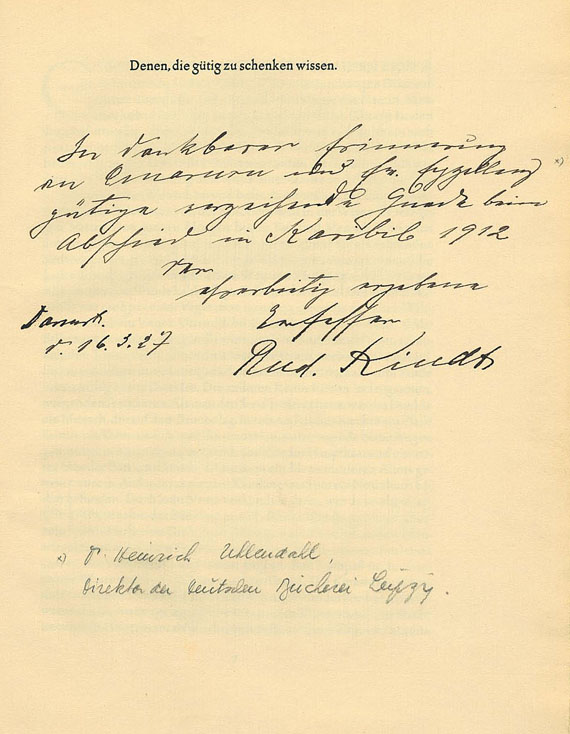 Denen, die gütig zu schenken wissen.
In dankbarer Erinnerung
an Omaruru und Ew. Exzellenz *)
gütige verzeihende Gnade beim
Abschied in Karibib 1912
der
ehrerbietig ergebene
Verfasser
Rud. Kindt
d. 16.3.27
*) D. Heinrich Uhlendahl,
Direktor der Deutschen Bücherei Leipzig.